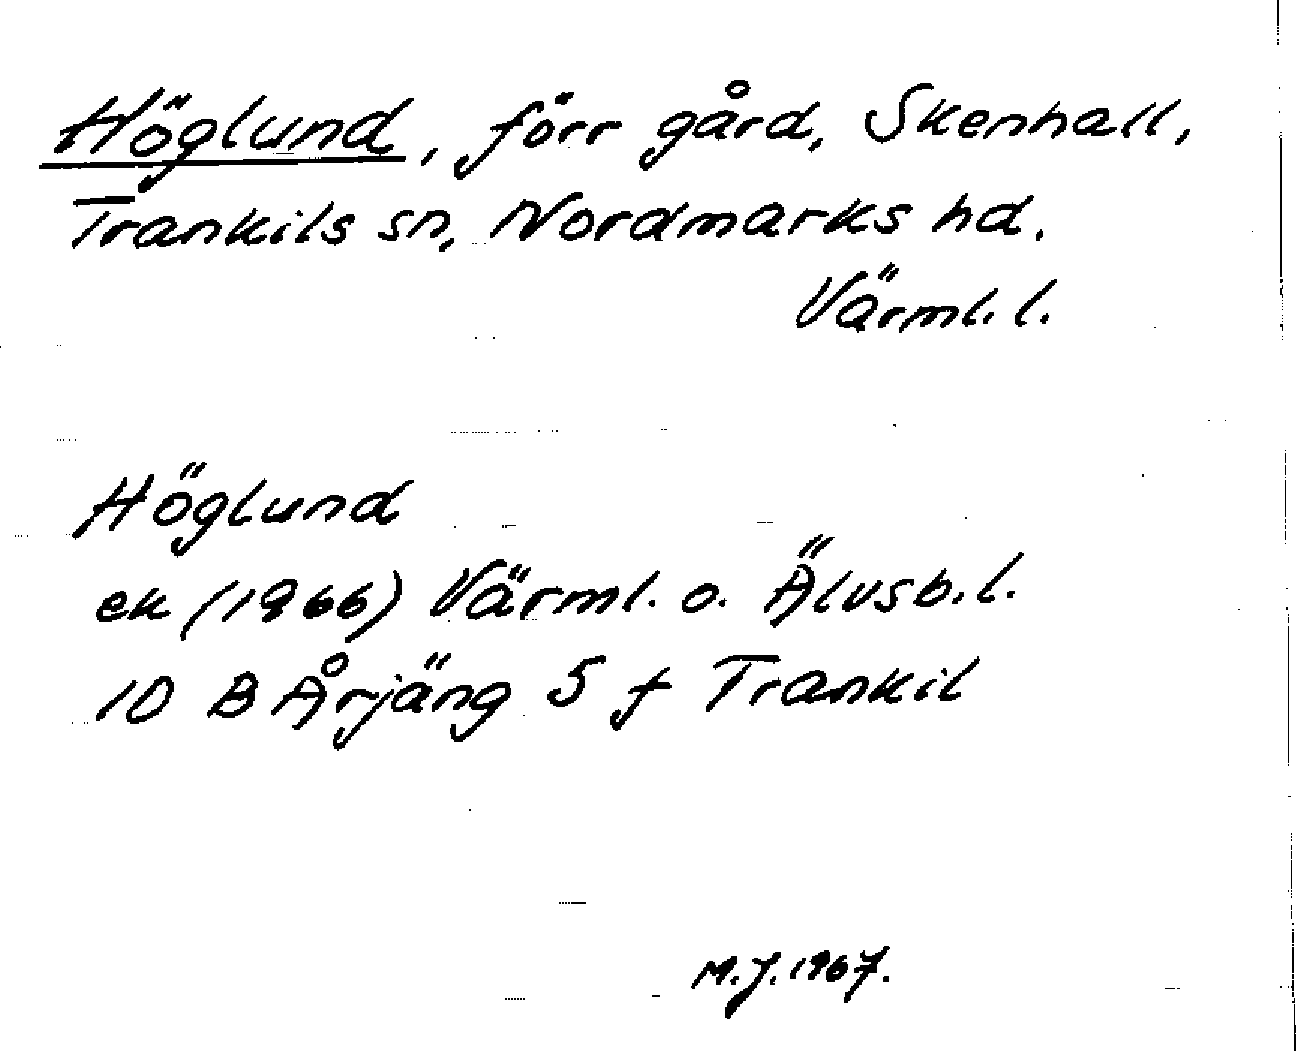 Höglund, förr gård, Skenhall,
Trankils sn, Nordmarks hd.
Värml. l.
Höglund
ek (1966) Värml. o. Älvsb. l.
10 B Årjäng 5 f Trankil
M.J. 1967.